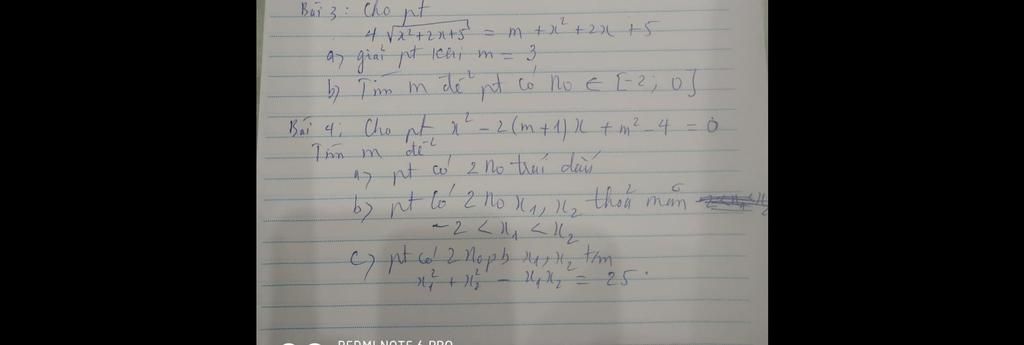 Bài 3: Cho pt
4√x²+2x+5 = m + x² + 2x + 5
a) giải pt khi m = 3
b) Tìm m để pt có no ∈ [-2; 0]
Bài 4: Cho pt x² - 2(m+1)x + m² - 4 = 0
Tìm m để
a) pt có 2 no trái dấu
b) pt có 2 no x₁, x₂ thoả mãn
-2 < x₁ < x₂
c) pt có 2 no pb x₁, x₂ t/m
x₁² + x₂² - x₁x₂ = 25
REDMI NOTE 6 PRO